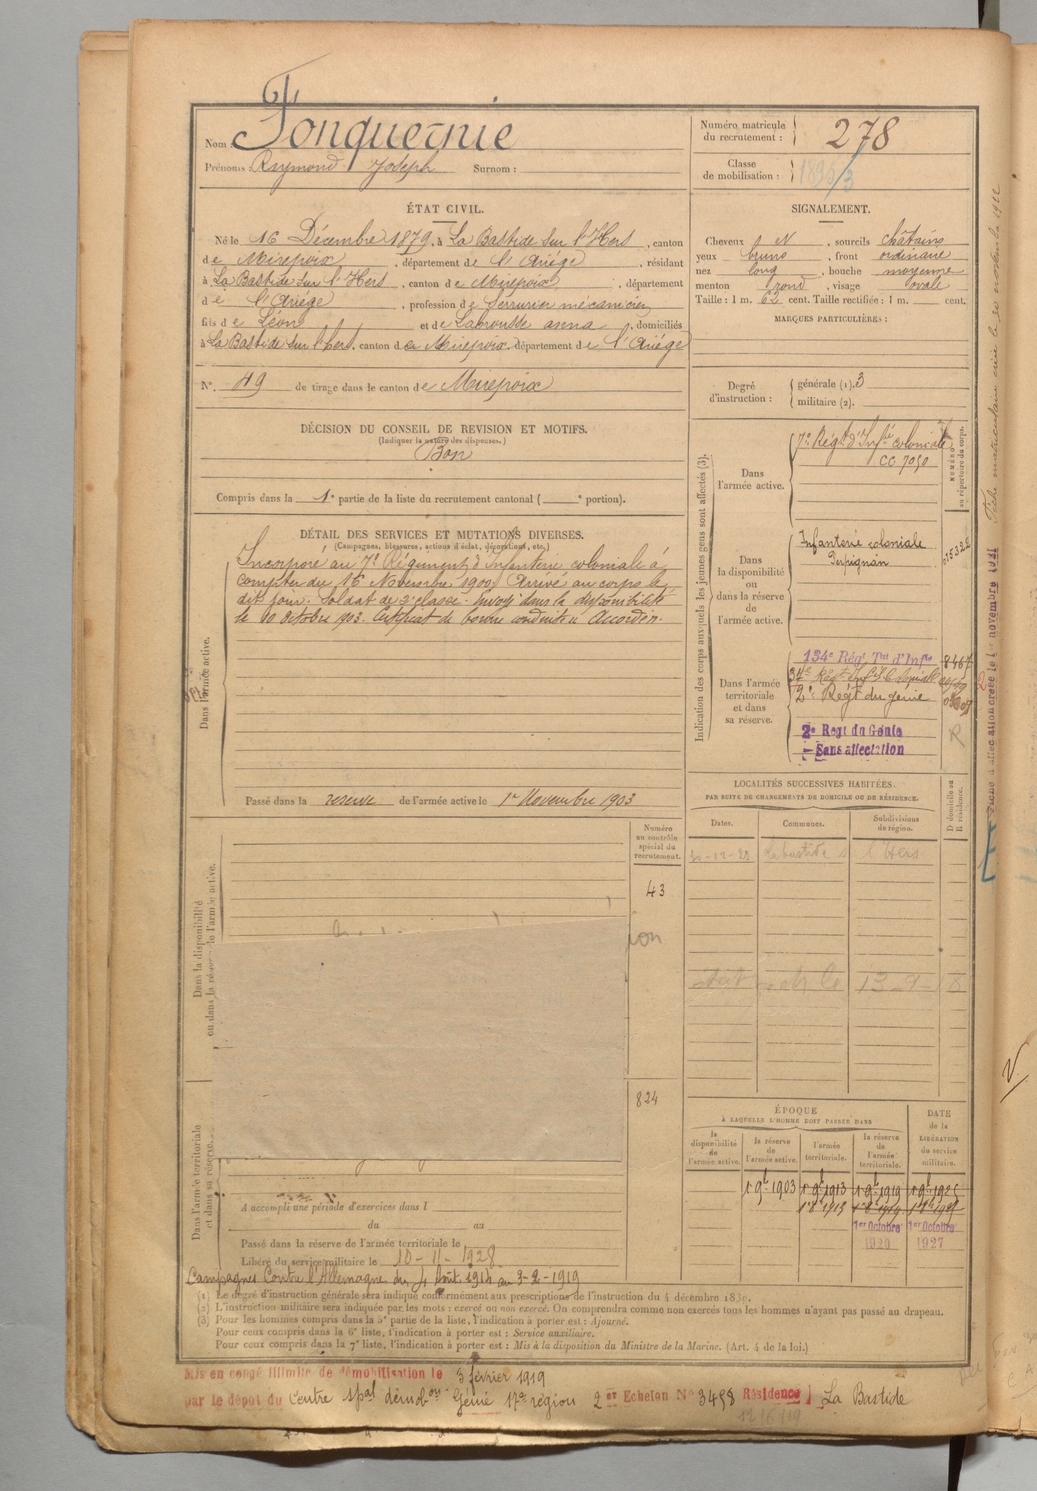 Nom : Fonquernie
Prénoms : Raymond Joseph Surnom :
Numéro matricule du recrutement : 278
Classe de mobilisation :
ÉTAT CIVIL.
Né le 16 Décembre 1879, à La Bastide sur l'Hers, canton
de Mirepoix, département de l'Ariège, résidant
à La Bastide sur l'Hers, canton de Mirepoix, département
de l'Ariège, profession de Serrurier mécanicien
fils de Léon et de Labrousse anna, domiciliés
à La Bastide sur l'hers, canton de Mirepoix, département de l'Ariège
N° 49 de tirage dans le canton de Mirepoix
SIGNALEMENT.
Cheveux N, sourcils châtains
yeux bruns, front ordinaire
nez long, bouche moyenne
menton rond, visage ovale
Taille : 1 m. 62 cent. Taille rectifiée : 1 m. cent.
MARQUES PARTICULIÈRES :
Degré d'instruction : générale (1). 3
militaire (2).
DÉCISION DU CONSEIL DE REVISION ET MOTIFS.
(Indiquer la nature des dispenses.)
Bon
Compris dans la 1e partie de la liste du recrutement cantonal ( e portion).
DÉTAIL DES SERVICES ET MUTATIONS DIVERSES.
(Campagnes, blessures, actions d'éclat, décorations, etc.)
Dans l'armée active.
Incorporé au 7e Régiment d'Infanterie coloniale à
compter du 16 Novembre 1900. Arrivé au corps le
dit jour. Soldat de 2e classe. Envoyé dans la disponibilité
le 10 octobre 1903. Certificat de bonne conduite Accordé.
Passé dans la réserve de l'armée active le 1er Novembre 1903
Indication des corps auxquels les jeunes gens sont affectés (3).
NUMÉRO au répertoire du corps.
Dans l'armée active.
7e Régt d'Infie coloniale
CC 7050
Dans la disponibilité ou dans la réserve de l'armée active.
Infanterie coloniale
Perpignan
Dans l'armée territoriale et dans sa réserve.
134e Régt Tal d'Infie 8467
34e Régt Inf. Coloniale
2e Régt du génie
2e Régt du Génie
Sans affectation
R
LOCALITÉS SUCCESSIVES HABITÉES.
PAR SUITE DE CHANGEMENTS DE DOMICILE OU DE RÉSIDENCE.
Dates. Communes. Subdivisions de région. D domicile ou R résidence.
Labastide s l'Hers
Dans la disponibilité ou dans la réserve de l'armée active.
Numéro au contrôle spécial du recrutement.
43
824
Dans l'armée territoriale et dans sa réserve.
A accompli une période d'exercices dans l
du au
Passé dans la réserve de l'armée territoriale le
Libéré du service militaire le 10-11-1928
Campagnes Contre l'Allemagne du 4 Août 1914 au 3-2-1919
ÉPOQUE
À LAQUELLE L'HOMME DOIT PASSER DANS
DATE de la LIBÉRATION du service militaire.
la disponibilité de l'armée active.
la réserve de l'armée active.
l'armée territoriale.
la réserve de l'armée territoriale.
1 9bre 1903 1 9bre 1913 1 9bre 1919
1er Octobre 1920 1er Octobre 1927
(1) Le degré d'instruction générale sera indiqué conformément aux prescriptions de l'instruction du 4 décembre 1889.
(2) L'instruction militaire sera indiquée par les mots : exercé ou non exercé. On comprendra comme non exercés tous les hommes n'ayant pas passé au drapeau.
(3) Pour les hommes compris dans la 5e partie de la liste, l'indication à porter est : Ajourné.
Pour ceux compris dans la 6e liste, l'indication à porter est : Service auxiliaire.
Pour ceux compris dans la 7e liste, l'indication à porter est : Mis à la disposition du Ministre de la Marine. (Art. 4 de la loi.)
Mis en congé illimité de démobilisation le 3 février 1919
par le dépôt du Centre spal démobon Génie 17e région 2er Echelon N° 3458 Résidence La Bastide